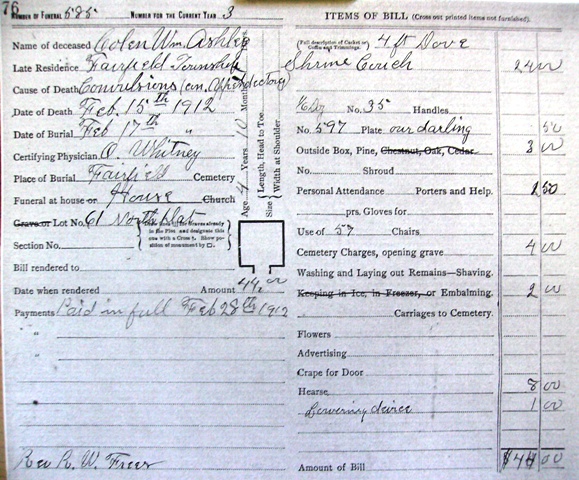 76
NUMBER OF FUNERAL 585 NUMBER FOR THE CURRENT YEAR 3
Name of deceased Colen Wm. Ashley
Late Residence Fairfield Township
Cause of Death Convulsions
Date of Death Feb. 15th 1912
Date of Burial Feb 17th "
Certifying Physician O. Whitney
Place of Burial Fairfield Cemetery
Funeral at house or House Church
Grave or Lot No. 61 North flat
Section No.
Bill rendered to
Date when rendered Amount 44.00
Payments Paid in full Feb 28th 1912
"
"
Rev R. W. Freer
Age 4 Years 10 Months
Size Length, Head to Toe.
Width at Shoulder
ITEMS OF BILL (Cross out printed items not furnished).
(Full description of Casket or Coffin and Trimmings.) 4 ft Dove
Shrine Couch 24 00
No. 35 Handles
No. 597 Plate our darling 50
Outside Box, Pine, Chestnut, Oak, Cedar 3 00
No. Shroud
Personal Attendance Porters and Help. 2 50
prs. Gloves for
Use of 57 Chairs.
Cemetery Charges, opening grave 4 00
Washing and Laying out Remains—Shaving.
Keeping in Ice, in Freezer, or Embalming. 2 00
Carriages to Cemetery.
Flowers
Advertising
Crape for Door
Hearse 8 00
Lowering device 1 00
Amount of Bill $44 00